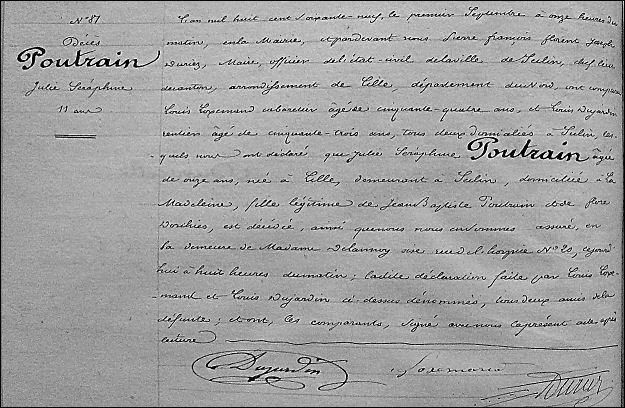 N° 87
Décès
Poutrain
Julie Séraphine
11 ans
L'an mil huit cent soixante-neuf, le premier Septembre à onze heures du
matin, en la Mairie, et pardevant nous Pierre françois florent Joseph
Duriez, Maire, officier de l'état-civil de la ville de Seclin, chef-lieu
de canton, arrondissement de Lille, département du Nord, ont comparu
Louis cabaretier âgé de cinquante-quatre ans, et Louis Dujardin
rentier âgé de cinquante-trois ans, tous deux domiciliés à Seclin, les-
quels nous ont déclaré que Julie Séraphine Poutrain âgée
de onze ans, née à Lille, demeurant à Seclin, domiciliée à La
Madeleine, fille légitime de Jean Baptiste Poutrain et de flore
est décédée, ainsi que nous nous en sommes assuré, en
la demeure de Madame Delannoy sise rue N° 20, cejourd'
hui à huit heures du matin; ladite déclaration faite par Louis
et Louis Dujardin ci-dessus dénommés, tous deux amis de la
défunte; et ont, les comparants, signé avec nous le présent acte après
lecture
Dujardin
Duriez